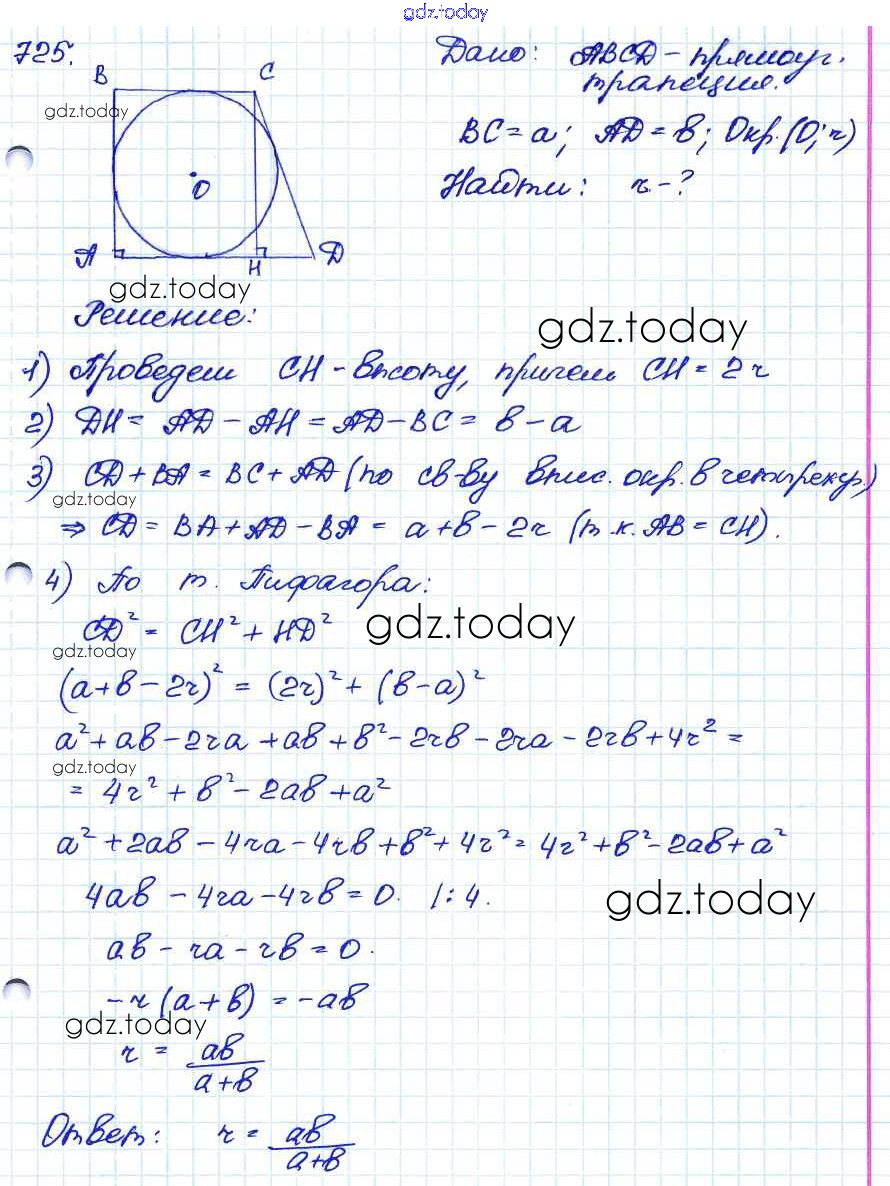 gdz.today
725.
Дано: ABCD - прямоуг.
трапеция.
BC = a; AD = b; Окр.(O; r)
Найти: r - ?
B C
gdz.today
O
A H D
gdz.today
Решение:
gdz.today
1) Проведем CH - высоту, причем CH = 2r
2) DH = AD - AH = AD - BC = b - a
3) CD + BA = BC + AD (по св-ву впис. окр. в четырехуг.)
gdz.today
⇒ CD = BA + AD - BA = a + b - 2r (т.к. AB = CH).
4) По т. Пифагора:
CD² = CH² + HD²
gdz.today
gdz.today
(a + b - 2r)² = (2r)² + (b - a)²
a² + ab - 2ra + ab + b² - 2rb - 2ra - 2rb + 4r² =
gdz.today
= 4r² + b² - 2ab + a²
a² + 2ab - 4ra - 4rb + b² + 4r² = 4r² + b² - 2ab + a²
4ab - 4ra - 4rb = 0. |: 4.
gdz.today
ab - ra - rb = 0.
-r (a + b) = -ab
gdz.today
r = ab
a + b
Ответ: r = ab
a + b